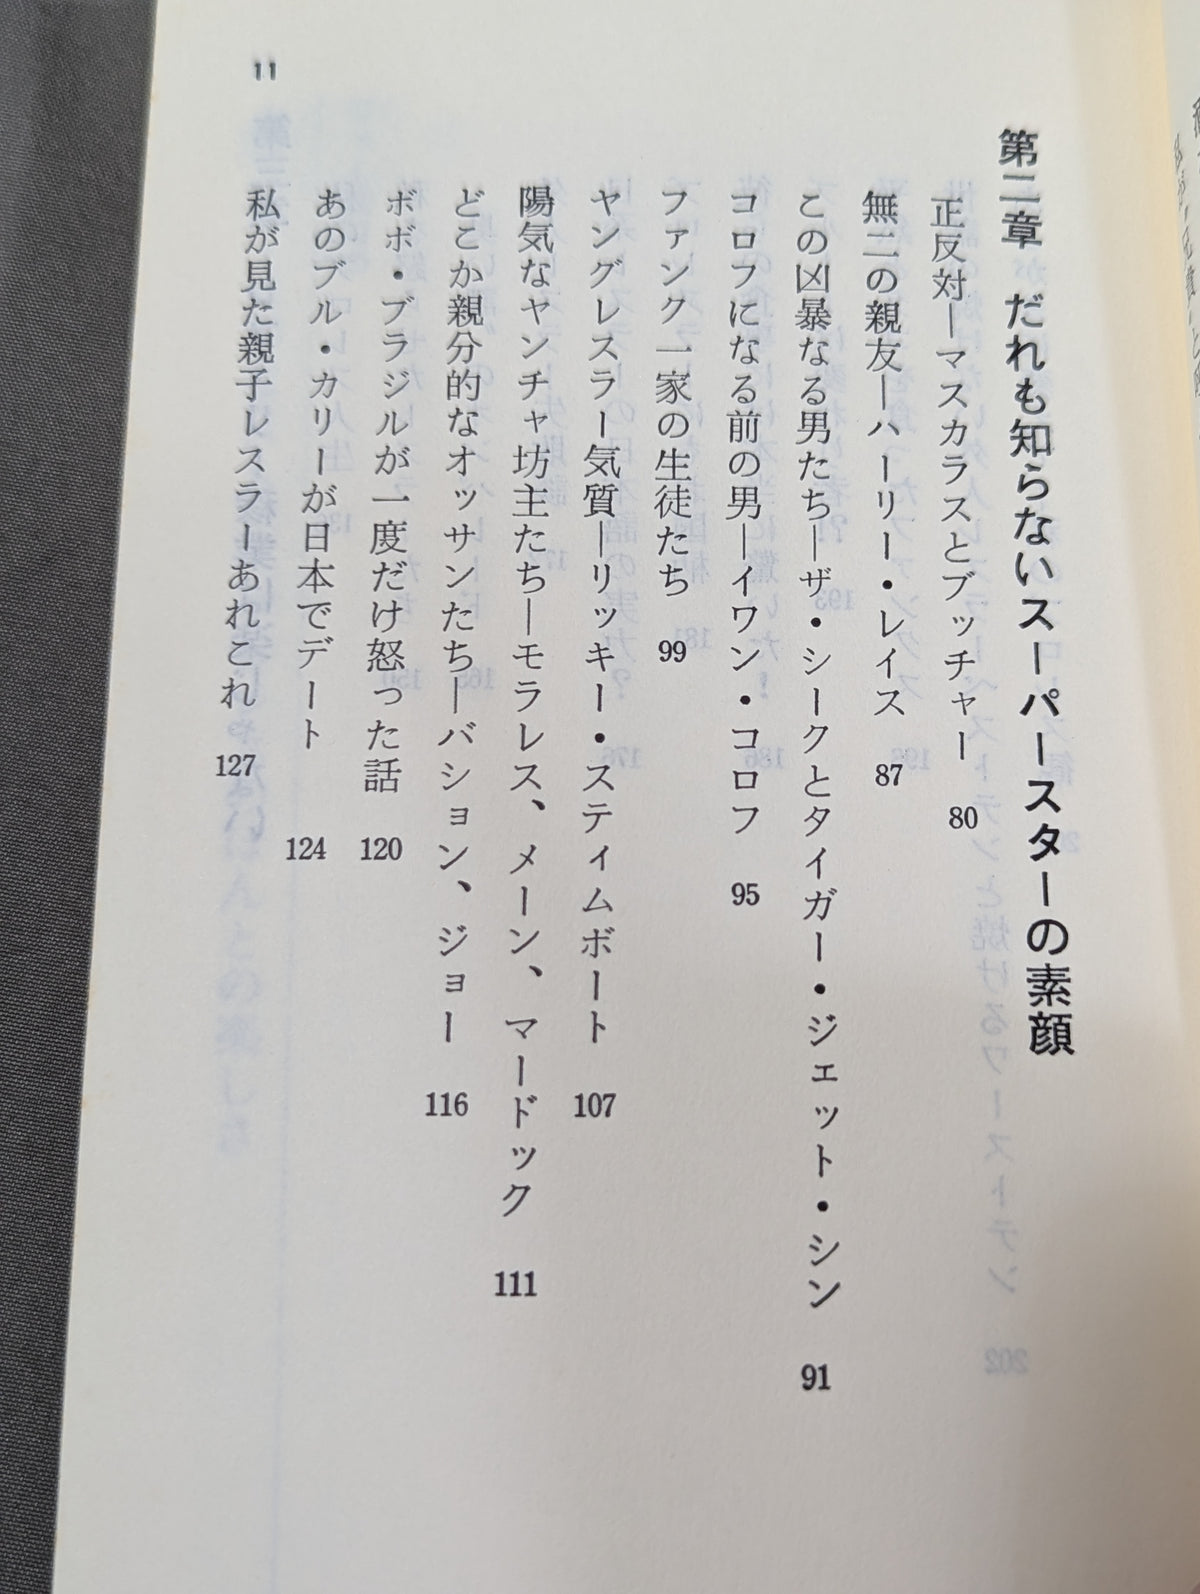 第二章 だれも知らないスーパースターの素顔
正反対―マスカラスとブッチャー 80
無二の親友―ハーリー・レイス 87
この凶暴なる男たち―ザ・シークとタイガー・ジェット・シン 91
コロフになる前の男―イワン・コロフ 95
ファンク一家の生徒たち 99
ヤングレスラー気質―リッキー・スティムボート 107
陽気なヤンチャ坊主たち―モラレス、メーン、マードック 111
どこか親分的なオッサンたち―バション、ジョー 116
ボボ・ブラジルが一度だけ怒った話 120
あのブル・カリーが日本でデート 124
私が見た親子レスラーあれこれ 127
11